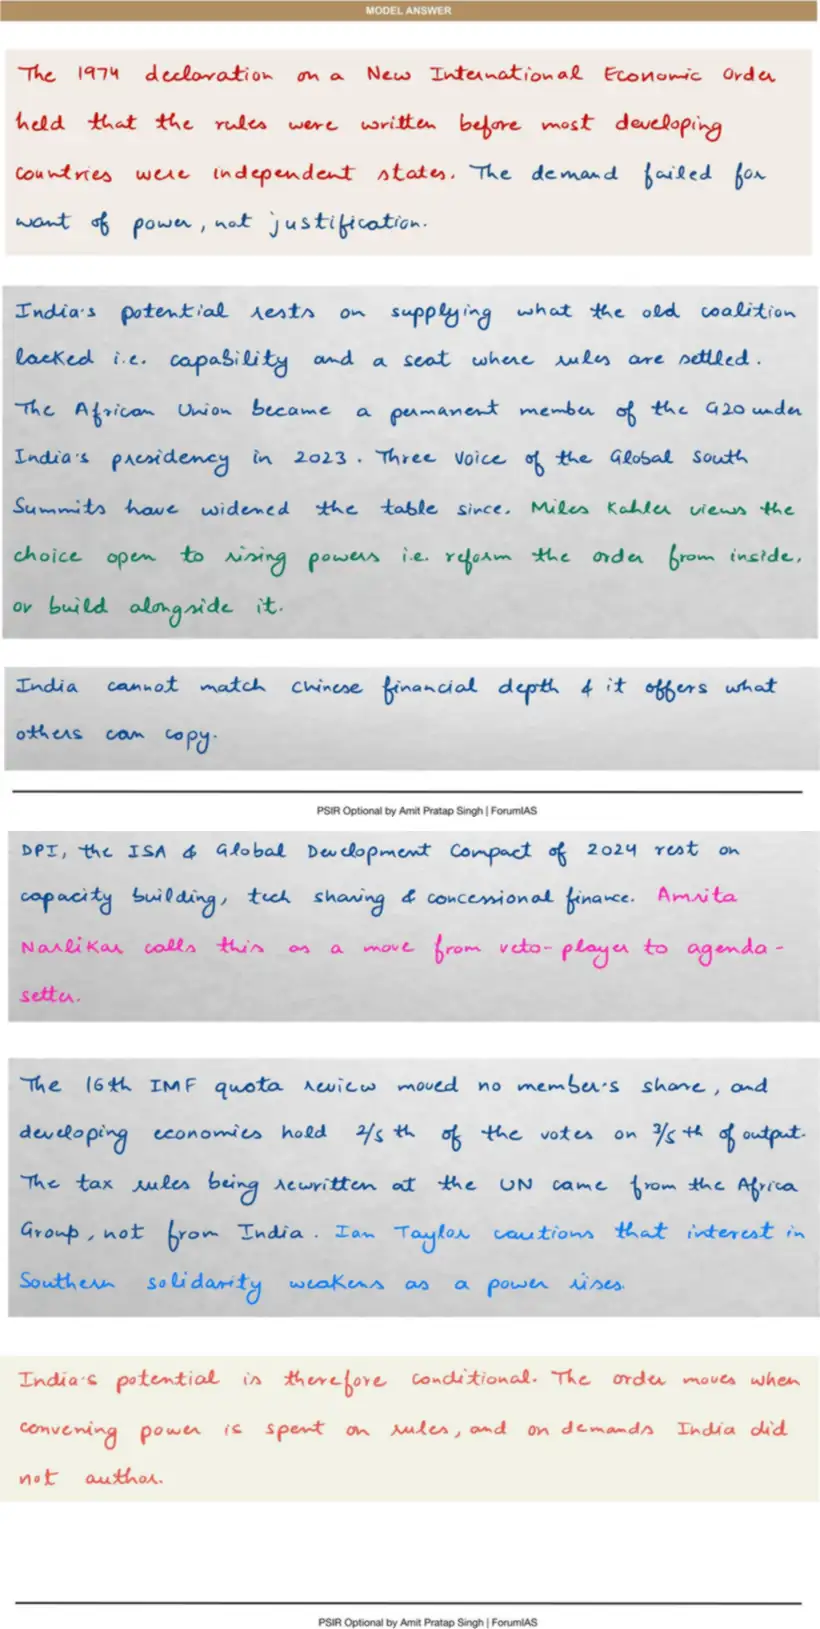 MODEL ANSWER
The 1974 declaration on a New International Economic Order
held that the rules were written before most developing
countries were independent states. The demand failed for
want of power, not justification.
India's potential rests on supplying what the old coalition
lacked i.e. capability and a seat where rules are settled.
The African Union became a permanent member of the G20 under
India's presidency in 2023. Three Voice of the Global South
Summits have widened the table since. Miles Kahler views the
choice open to rising powers i.e. reform the order from inside,
or build alongside it.
India cannot match Chinese financial depth & it offers what
others can copy.
PSIR Optional by Amit Pratap Singh | ForumIAS
DPI, the ISA & Global Development Compact of 2024 rest on
capacity building, tech sharing & concessional finance. Amrita
Narlikar calls this as a move from veto-player to agenda-
setter.
The 16th IMF quota review moved no member's share, and
developing economies hold 2/5th of the votes on 3/5th of output.
The tax rules being rewritten at the UN came from the Africa
Group, not from India. Ian Taylor cautions that interest in
Southern solidarity weakens as a power rises.
India's potential is therefore conditional. The order moves when
convening power is spent on rules, and on demands India did
not author.
PSIR Optional by Amit Pratap Singh | ForumIAS